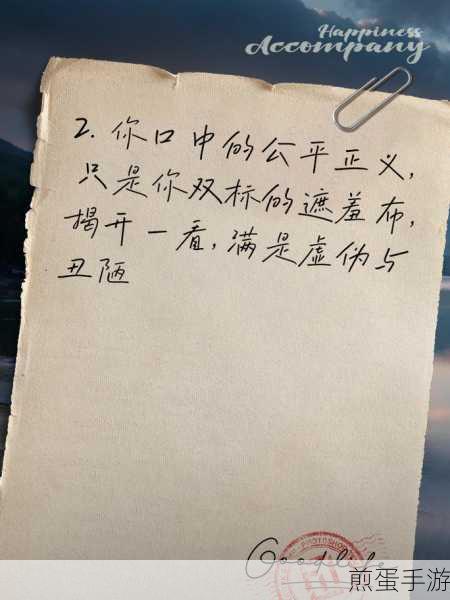 Happiness
Accompany
2. 你口中的公平正义,
只是你双标的遮羞布,
揭开一看,满是虚伪与
丑陋
Good life
PHOTOSHOP
煎蛋手游